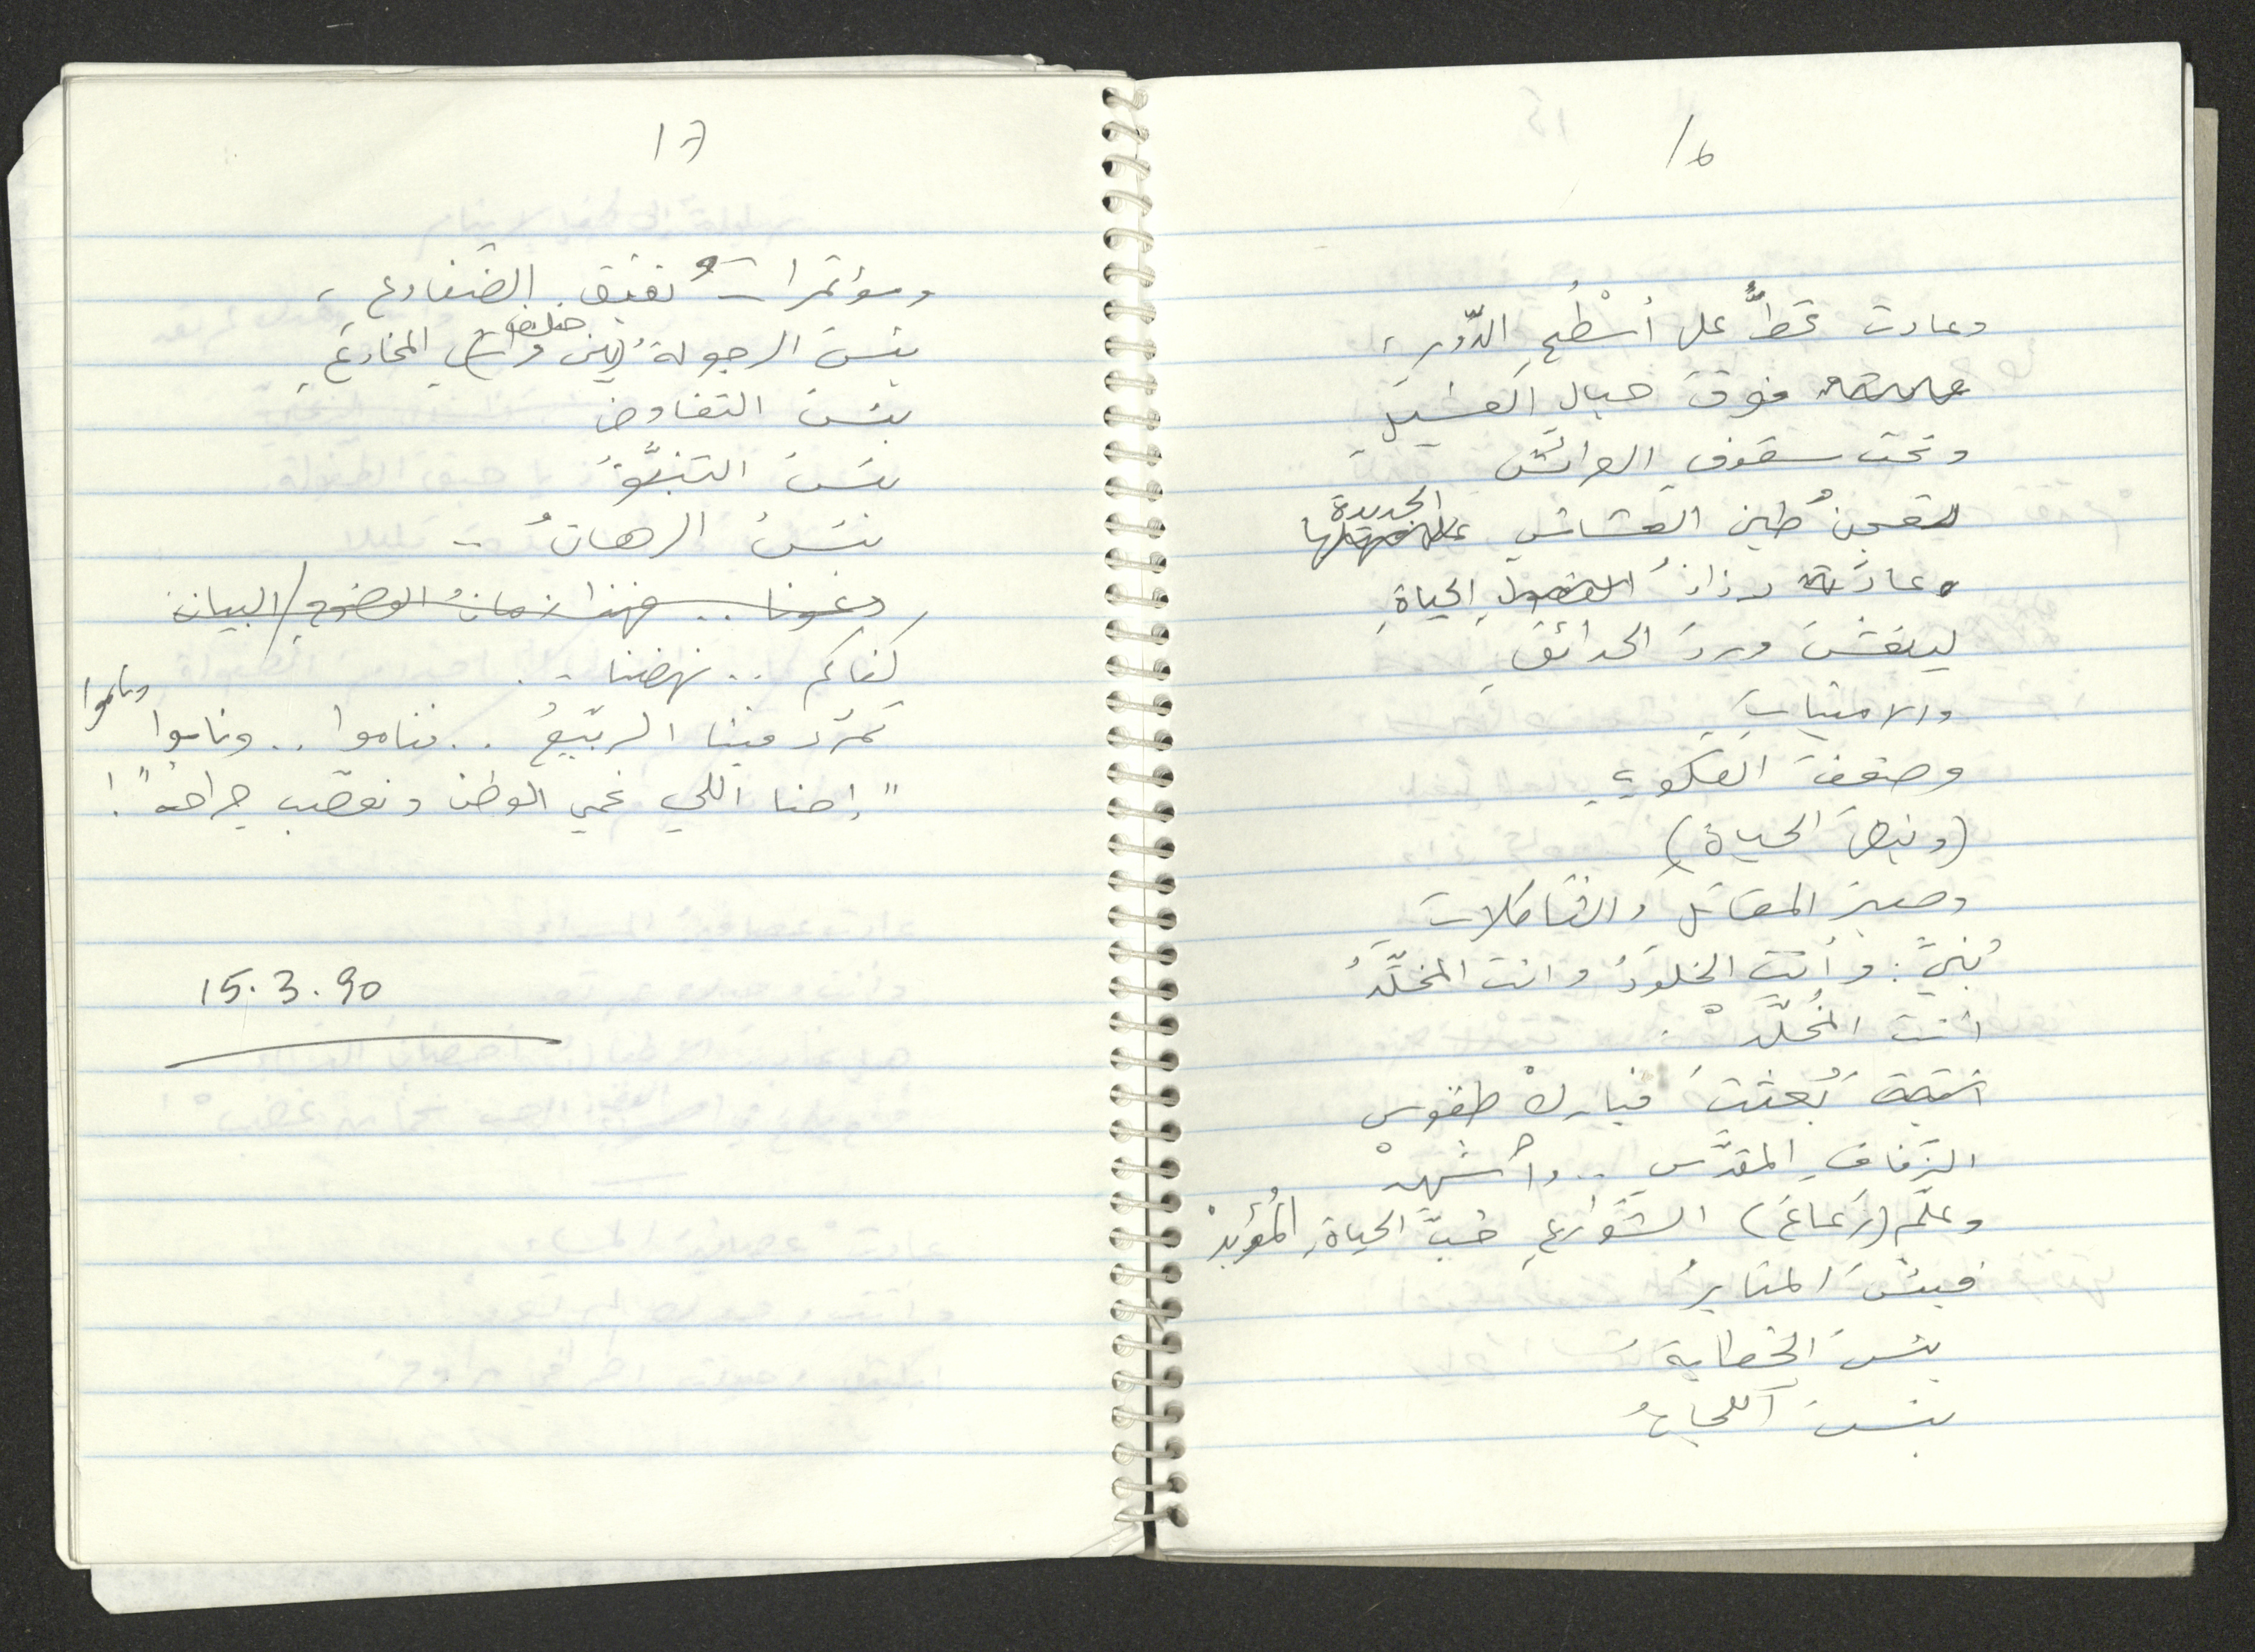 16
وعادت تحطُّ على أسْطُحِ الدّورِ،
فوقَ حبالِ الغسيلِ
وتحت سقوفِ العرائش
لتعجنَ طينَ العشاشِ الجديدة
وعادَ رذاذُ الحياةِ
لينعشَ وردَ الحدائقِ
والأمنياتِ
وضعفَ الشكوى
(ونبضَ الحياةِ)
وصبرَ المقاتل والثاكلات
بُنيَّ: وأنتَ الخلودُ وانت المخلَّدُ
أنت المُخلَّدْ.
بُعثتَ فباركْ طقوس
الزفافِ المقدَّس .. واشهدْ
وعلّم (رعاعَ) الشوارعِ حُبَّ الحياةِ المُؤبدْ
فبئسَ المنابرُ
بئسَ الخطابةُ
بئسَ اللجانُ
17
ومؤتمراتُ نقيق الضفادع،
بئسَ الرجولةُ بين فراشِ المخادعِ
بئسَ التفاوض
بئسَ التنبّؤ
بئسَ الرهانُ ..
دعونا .. فهذا زمانُ الوضوح / البيان
كفاكم .. نهضنا ..
تمرّد فينا الربيعُ .. فناموا .. وناموا وناموا
"إحنا اللي نحمي الوطن ونعصّب جراحه"!
15.3.90